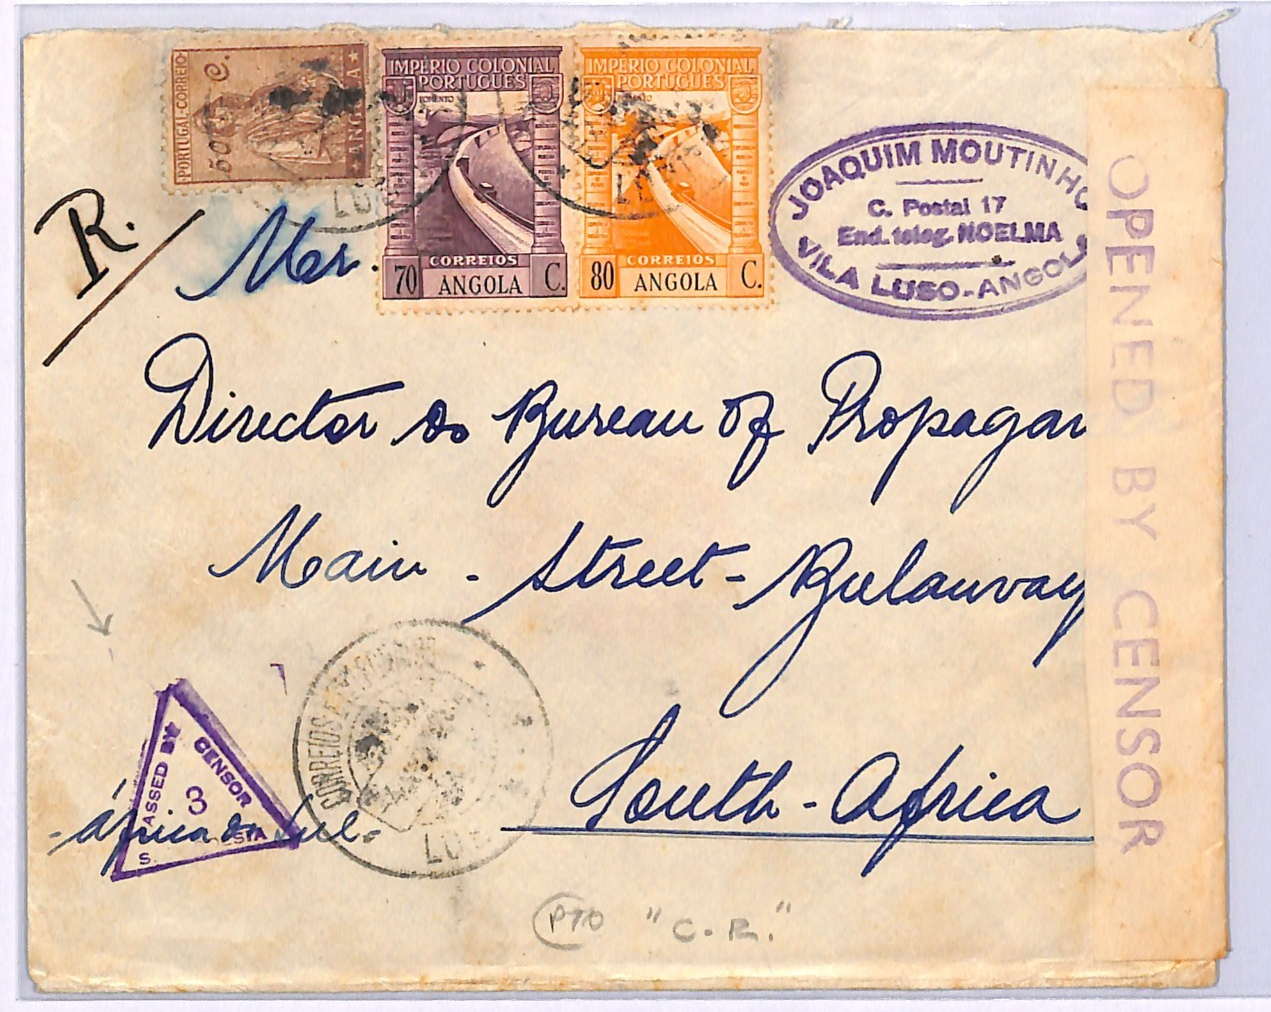 PORTUGAL-CORREIO
50 C.
ANGOLA
IMPÉRIO COLONIAL
PORTUGUÊS
FOMENTO
CORREIOS
70 ANGOLA C.
IMPÉRIO COLONIAL
PORTUGUÊS
CORREIOS
80 ANGOLA C.
JOAQUIM MOUTINHO
C. Postal 17
End. teleg. NOELMA
VILA LUSO-ANGOLA
R.
Mer.
Director do Bureau of Propagan
Main - Street - Bulauvay
South - Africa
- África do Sul -
PASSED BY CENSOR
3
CORREIOS E
LUSO
OPENED BY CENSOR
PTO "C.R."